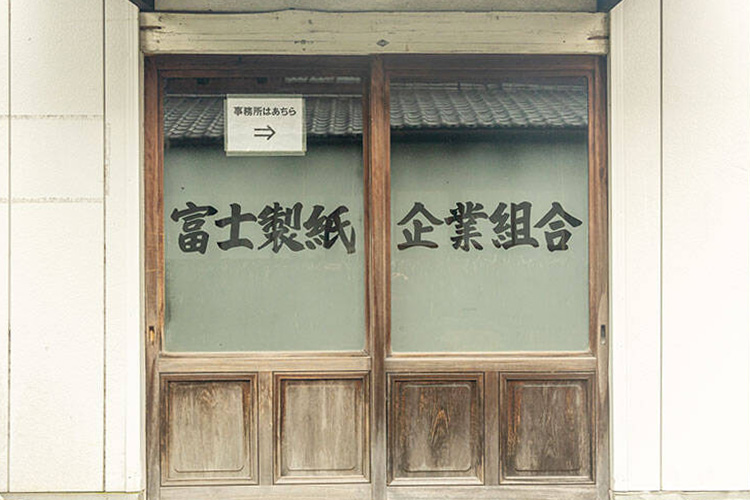 事務所はあちら
⇒
富士製紙 企業組合